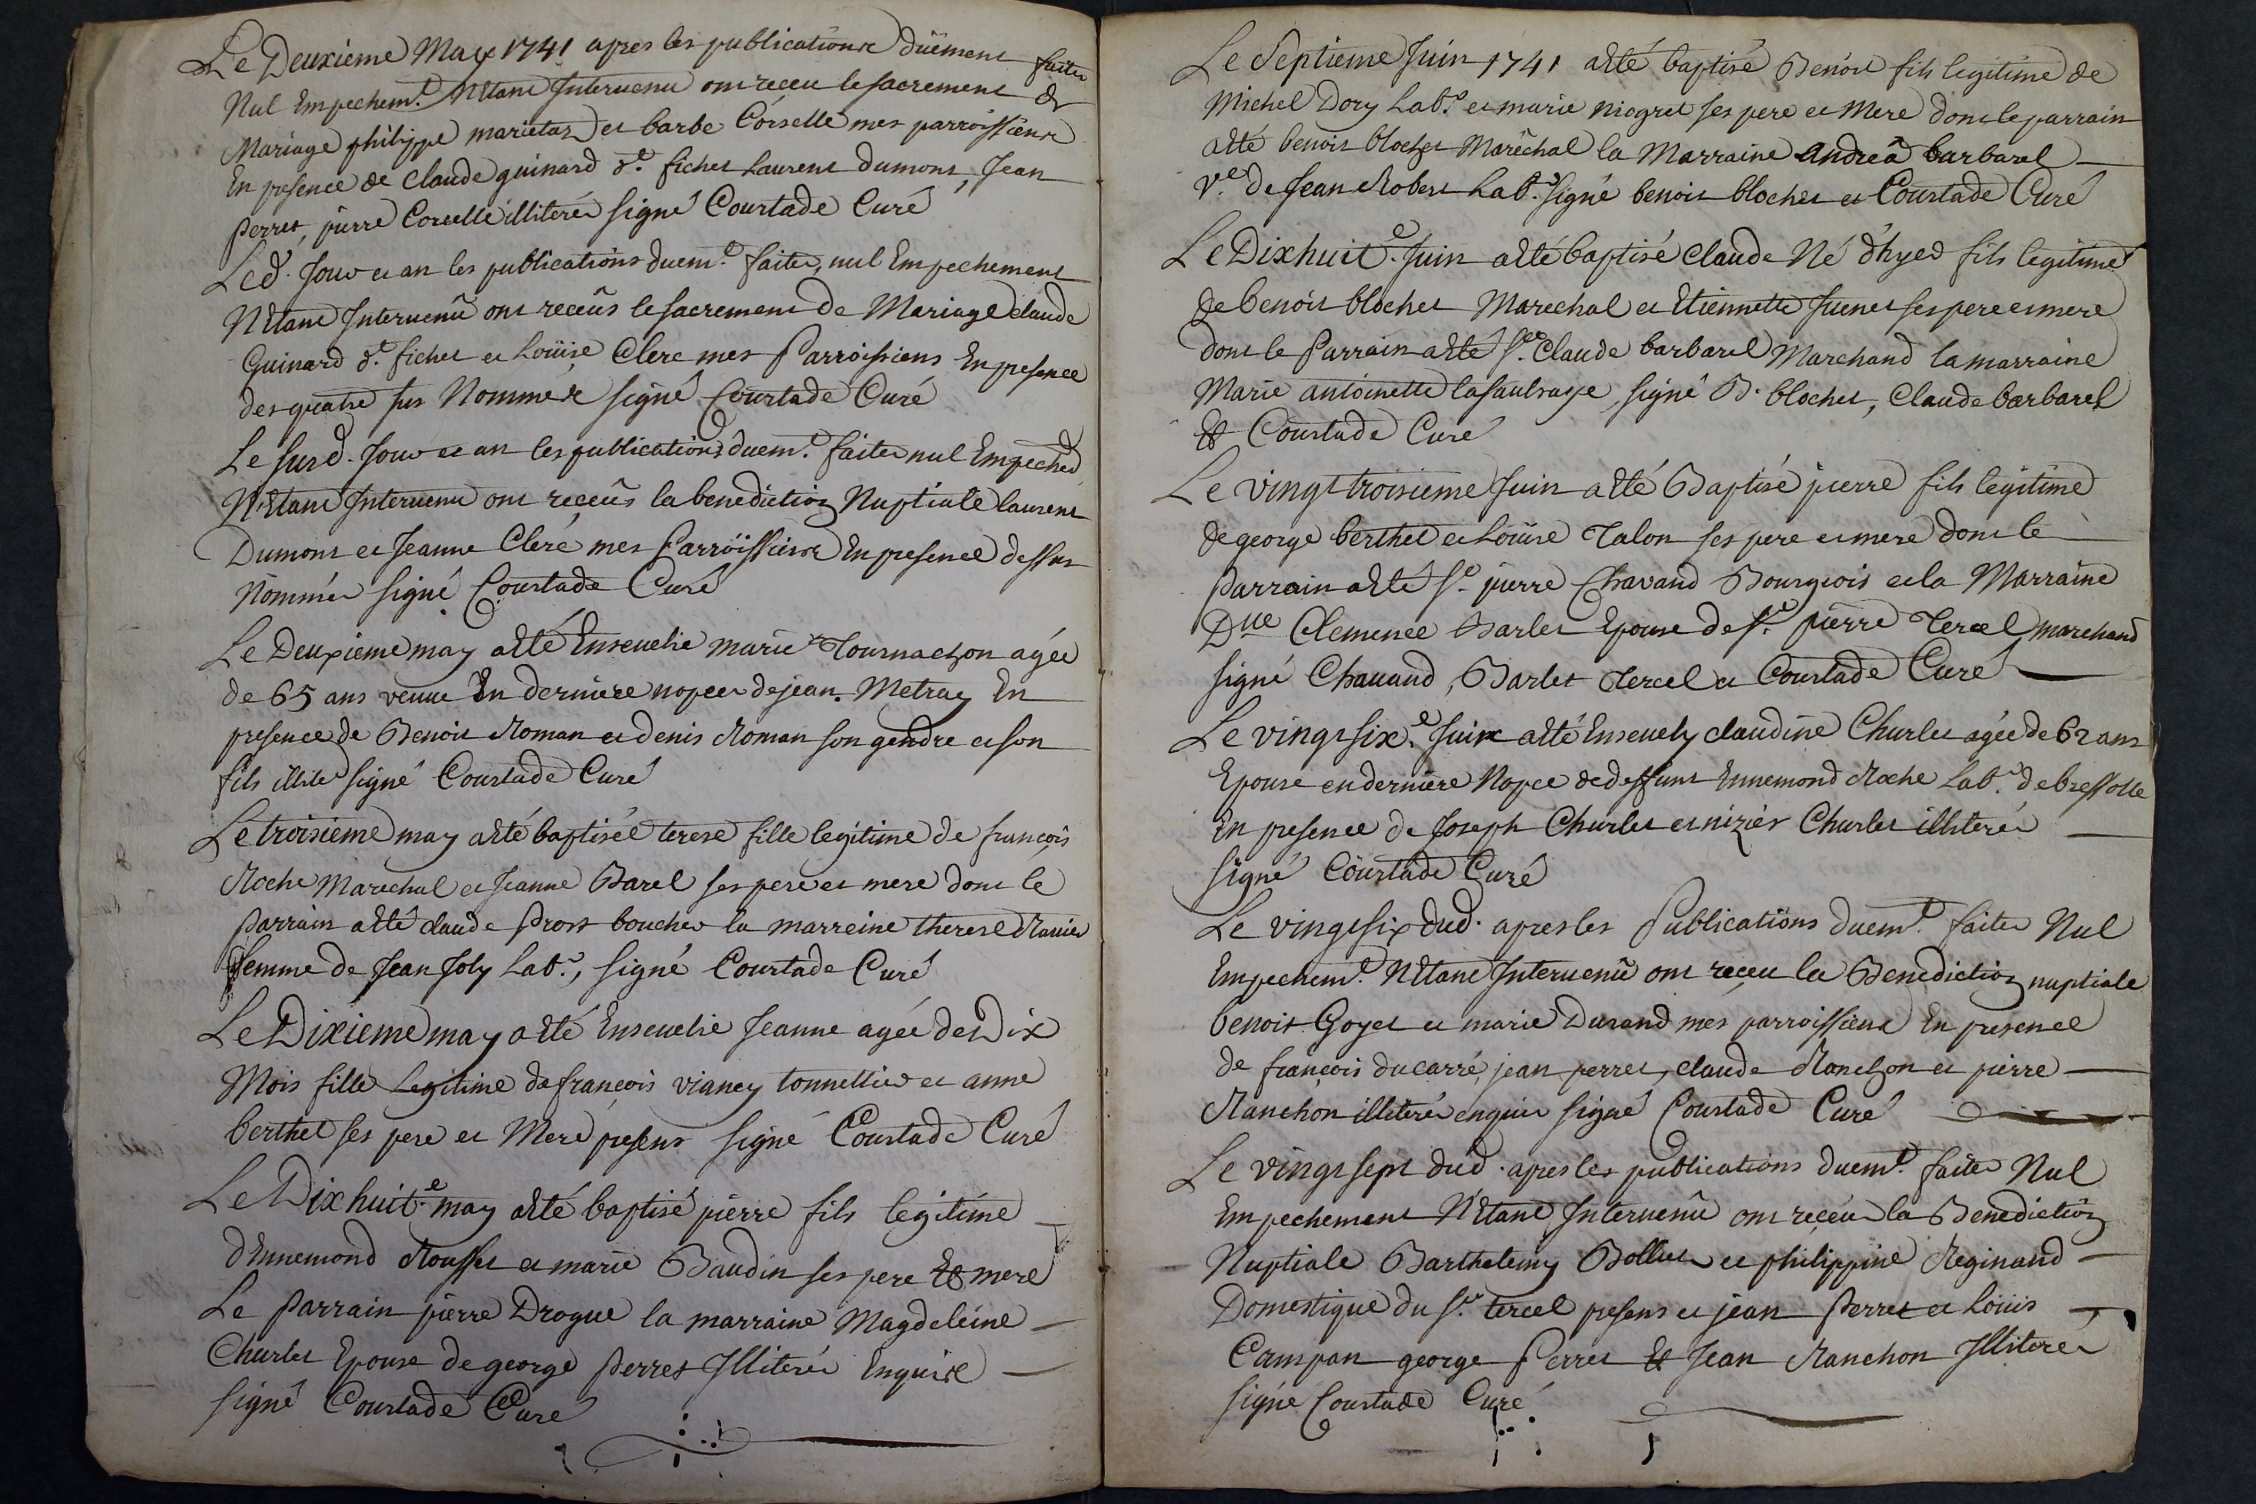 Le Deuxieme May 1741 apres les publications düement faites
Nul Empechem.t N'Etant Intervenu ont receu le sacrement de
Mariage philippe marietaz et barbe Corselle mes parroissiens
En presence de claude guinard d.t fichet Laurent dumont, Jean
perret, pierre Corcelle illiterés signé Courtade Curé
Led. Jour et an les publications duem.t faites, nul Empechement
N'Etant Intervenû ont receûs le sacrement de Mariage claude
Guinard d.t fichet et Loüise Clerc mes Parroissiens En presence
des quatre sus Nommés signé Courtade Curé
Le susd. Jour et an les publications duem.t faites nul Empeched
N'Etant Intervenu ont receûs la benediction Nuptiale laurent
Dumont et Jeanne Clerc mes Parroissiens En presence dessus
Nommés signé Courtade Curé
Le Deuxieme may a Eté Ensevelie marie Tournachon agée
de 65 ans veuve En derniere nopces de jean Metray En
presence de Benoit Roman et denis Roman son gendre et son
fils illite signé Courtade Curé
Le troisieme may a Eté baptisée terese fille legitime de françois
Roche Marechal et Jeanne Barel ses pere et mere dont le
parrain a Eté claude Prost boucher la marreine therese
femme de Jean Joly Lab.r, signé Courtade Curé
Le Dixieme may a Eté Ensevelie Jeanne agée des Dix
Mois fille Legitime de françois vianey tonnellier et anne
berthet ses pere et Mere presens signé Courtade Curé
Le Dixhuit.e may a Eté baptisé pierre fils legitime
d'Ennemond Rousset et marie Baudin ses pere Et mere
Le Parrain pierre Drogue la marraine Magdeleine
Churlet Epouse de george perret Illiterés Enquis
signé Courtade Curé
Le Septieme Juin 1741 a Eté baptisé Benoit fils legitime de
Michel Dory Lab.r et marie niogret ses pere et Mere dont le parrain
a Eté benoit blochet Marêchal la Marraine Andreâ barbarel
v.e de Jean Robert Lab.r signé benoit blochet et Courtade Curé
Le Dixhuit.e Juin a Eté baptisé claude Né d'hyed fils legitime
de benoit blochet Marechal et Etiennette ses pere et mere
dont le Parrain a Eté s.r Claude barbarel Marchand la marraine
Marie antoinette lasaulsaye, signé B. blochet, Claude barbarel
Et Courtade Curé
Le vingt troisieme Juin a Eté Baptisé pierre fils legitime
de george berthet et Loüise Talon ses pere et mere dont le
parrain a Eté s.r pierre Chavand Bourgeois et la Marraine
D.lle Clemence Barlet Epouse de s.r pierre Tercel marchand
signé Chavand, Barlet Tercel et Courtade Curé
Le vingt six.e Juin a Eté Ensevely claudine Churlet agée de 62 ans
Epouse en derniere Nopce de deffunt Ennemond Roche Lab.r de bressolle
En presence de Joseph Churlet et nizier Churlet illiterés
signé Courtade Curé
Le vingt six dud. apres les Publications duem.t faites Nul
Empechem.t N'Etant Intervenû ont receu la Benediction nuptiale
benoit Goyet et marie Durand més parroissiens En presence
de françois ducarré, jean perret, claude Ranchon et pierre
Ranchon illiterés enquis signé Courtade Curé
Le vingt sept dud. apres les publications duem.t faites Nul
Empechement N'Etant Intervenû ont receu la Benediction
Nuptiale Barthelemy Bolliet et philippine Reginand
Domestique du s.r tercel presens et jean Perret et Loüis
Campan george Perret Et Jean Ranchon Illiterés
signé Courtade Curé